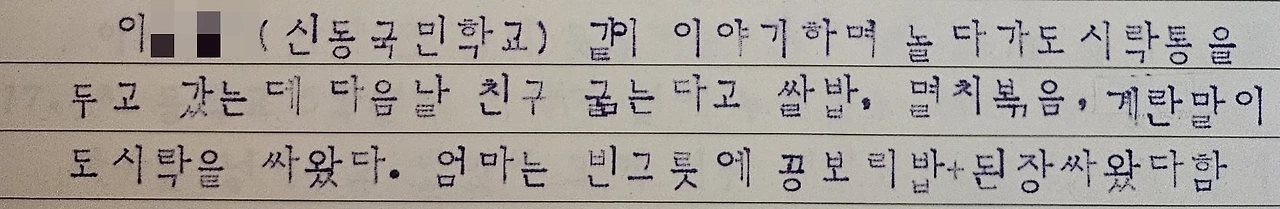 이 (신동국민학교) 같이 이야기하며 놀다가도시락통을
두고 갔는데 다음날 친구 굶는다고 쌀밥, 멸치볶음, 계란말이
도시락을 싸왔다. 엄마는 빈그릇에 꽁보리밥+된장싸왔다함